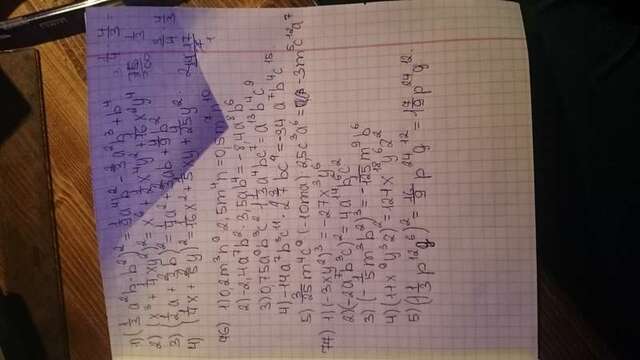 1) (1/3 a²b - b²)² = 1/9 a⁴b² - 2/3 a²b³ + b⁴
2) (x³ + 1/4 xy²)² = x⁶ + 1/2 x⁴y² + 1/16 x²y⁴
3) (1/2 a + 2/3 b)² = 1/4 a² + 2/3 ab + 4/9 b²
4) (1/4 x + 2/5 y)² = 1/16 x² + 1/5 xy + 4/25 y²
76) 1) 0,2m³n⁹ · 2,5m⁴n = 0,5m⁷n¹⁰
2) -2,4a⁷b² · 3,5ab⁴ = -8,4a⁸b⁶
3) 0,75a⁹b³c² · 1 1/3 a⁴bc⁷ = a¹³b⁴c⁹
4) -14a⁷b³c¹¹ · 2 3/7 bc⁴ = -34 a⁷b⁴c¹⁵
5) 3/25 m⁴c⁹ · (-10ma) · 2,5c³a⁶ = -3m⁵c¹²a⁷
77) 1) (-3xy²)³ = -27x³y⁶
2) (-2a⁷b³c)² = 4a¹⁴b⁶c²
3) (-1/5 m³b²)³ = -1/125 m⁹b⁶
4) (11x⁹y³z)² = 121x¹⁸y⁶z²
5) (1 1/3 p¹²g⁶)² = 16/9 p²⁴g¹² = 1 7/9 p²⁴g¹².